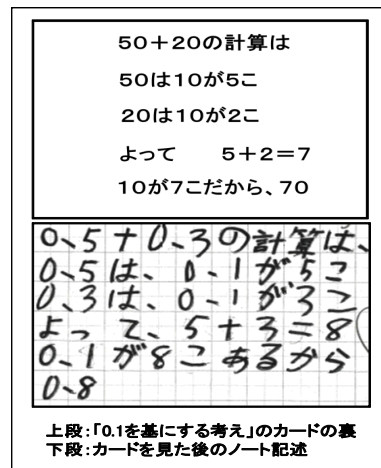 50+20の計算は
50は10が5こ
20は10が2こ
よって　5+2=7
10が7こだから、70
0、5+0、3の計算は、
0、5は、0、1が5こ
0、3は、0、1が3こ
よって、5+3=8
0、1が8こあるから
0、8
上段:「0.1を基にする考え」のカードの裏
下段:カードを見た後のノート記述